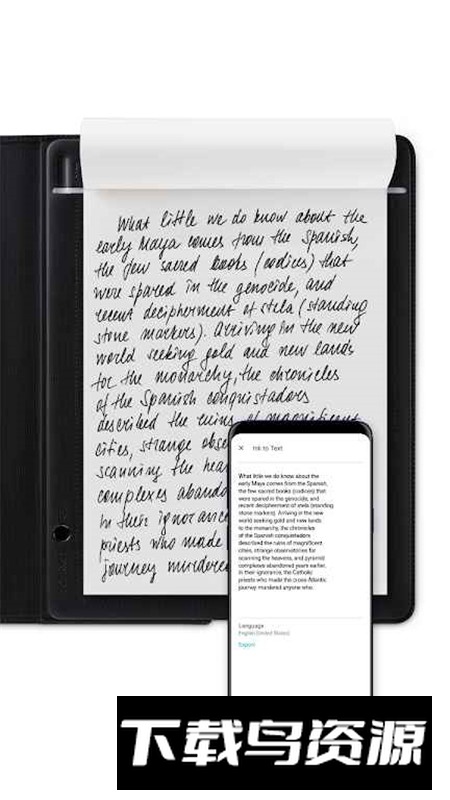 What little we do know about the
early Maya comes from the Spanish,
the few sacred books (codices) that
were spared in the genocide, and
recent decipherment of stela (standing
stone markers). Arriving in the new
world seeking gold and new lands
for the monarchy, the chronicles
of the Spanish conquistadors
described the ruins of magnificent
cities, strange obse
scanning the hea
complexes abando
in their ignoranc
priests who made
journey murdered
× Ink to Text
What little we do know about the
early Maya comes from the Spanish,
the few sacred books (codices) that
were spared in the genocide, and
recent decipherment of stela (standing
stone markers). Arriving in the new
world seeking gold and new lands
to the monarchy, the chronicles
of the Spanish conquistadors
described the ruins of magnificent
cities, strange observatories for
scanning the heavens, and pyramid
complexes abandoned years earlier.
In their ignorance, the Catholic
priests who made the cross Atlantic
journey murdered anyone who.
Language
English (United States)
Export
下载鸟资源